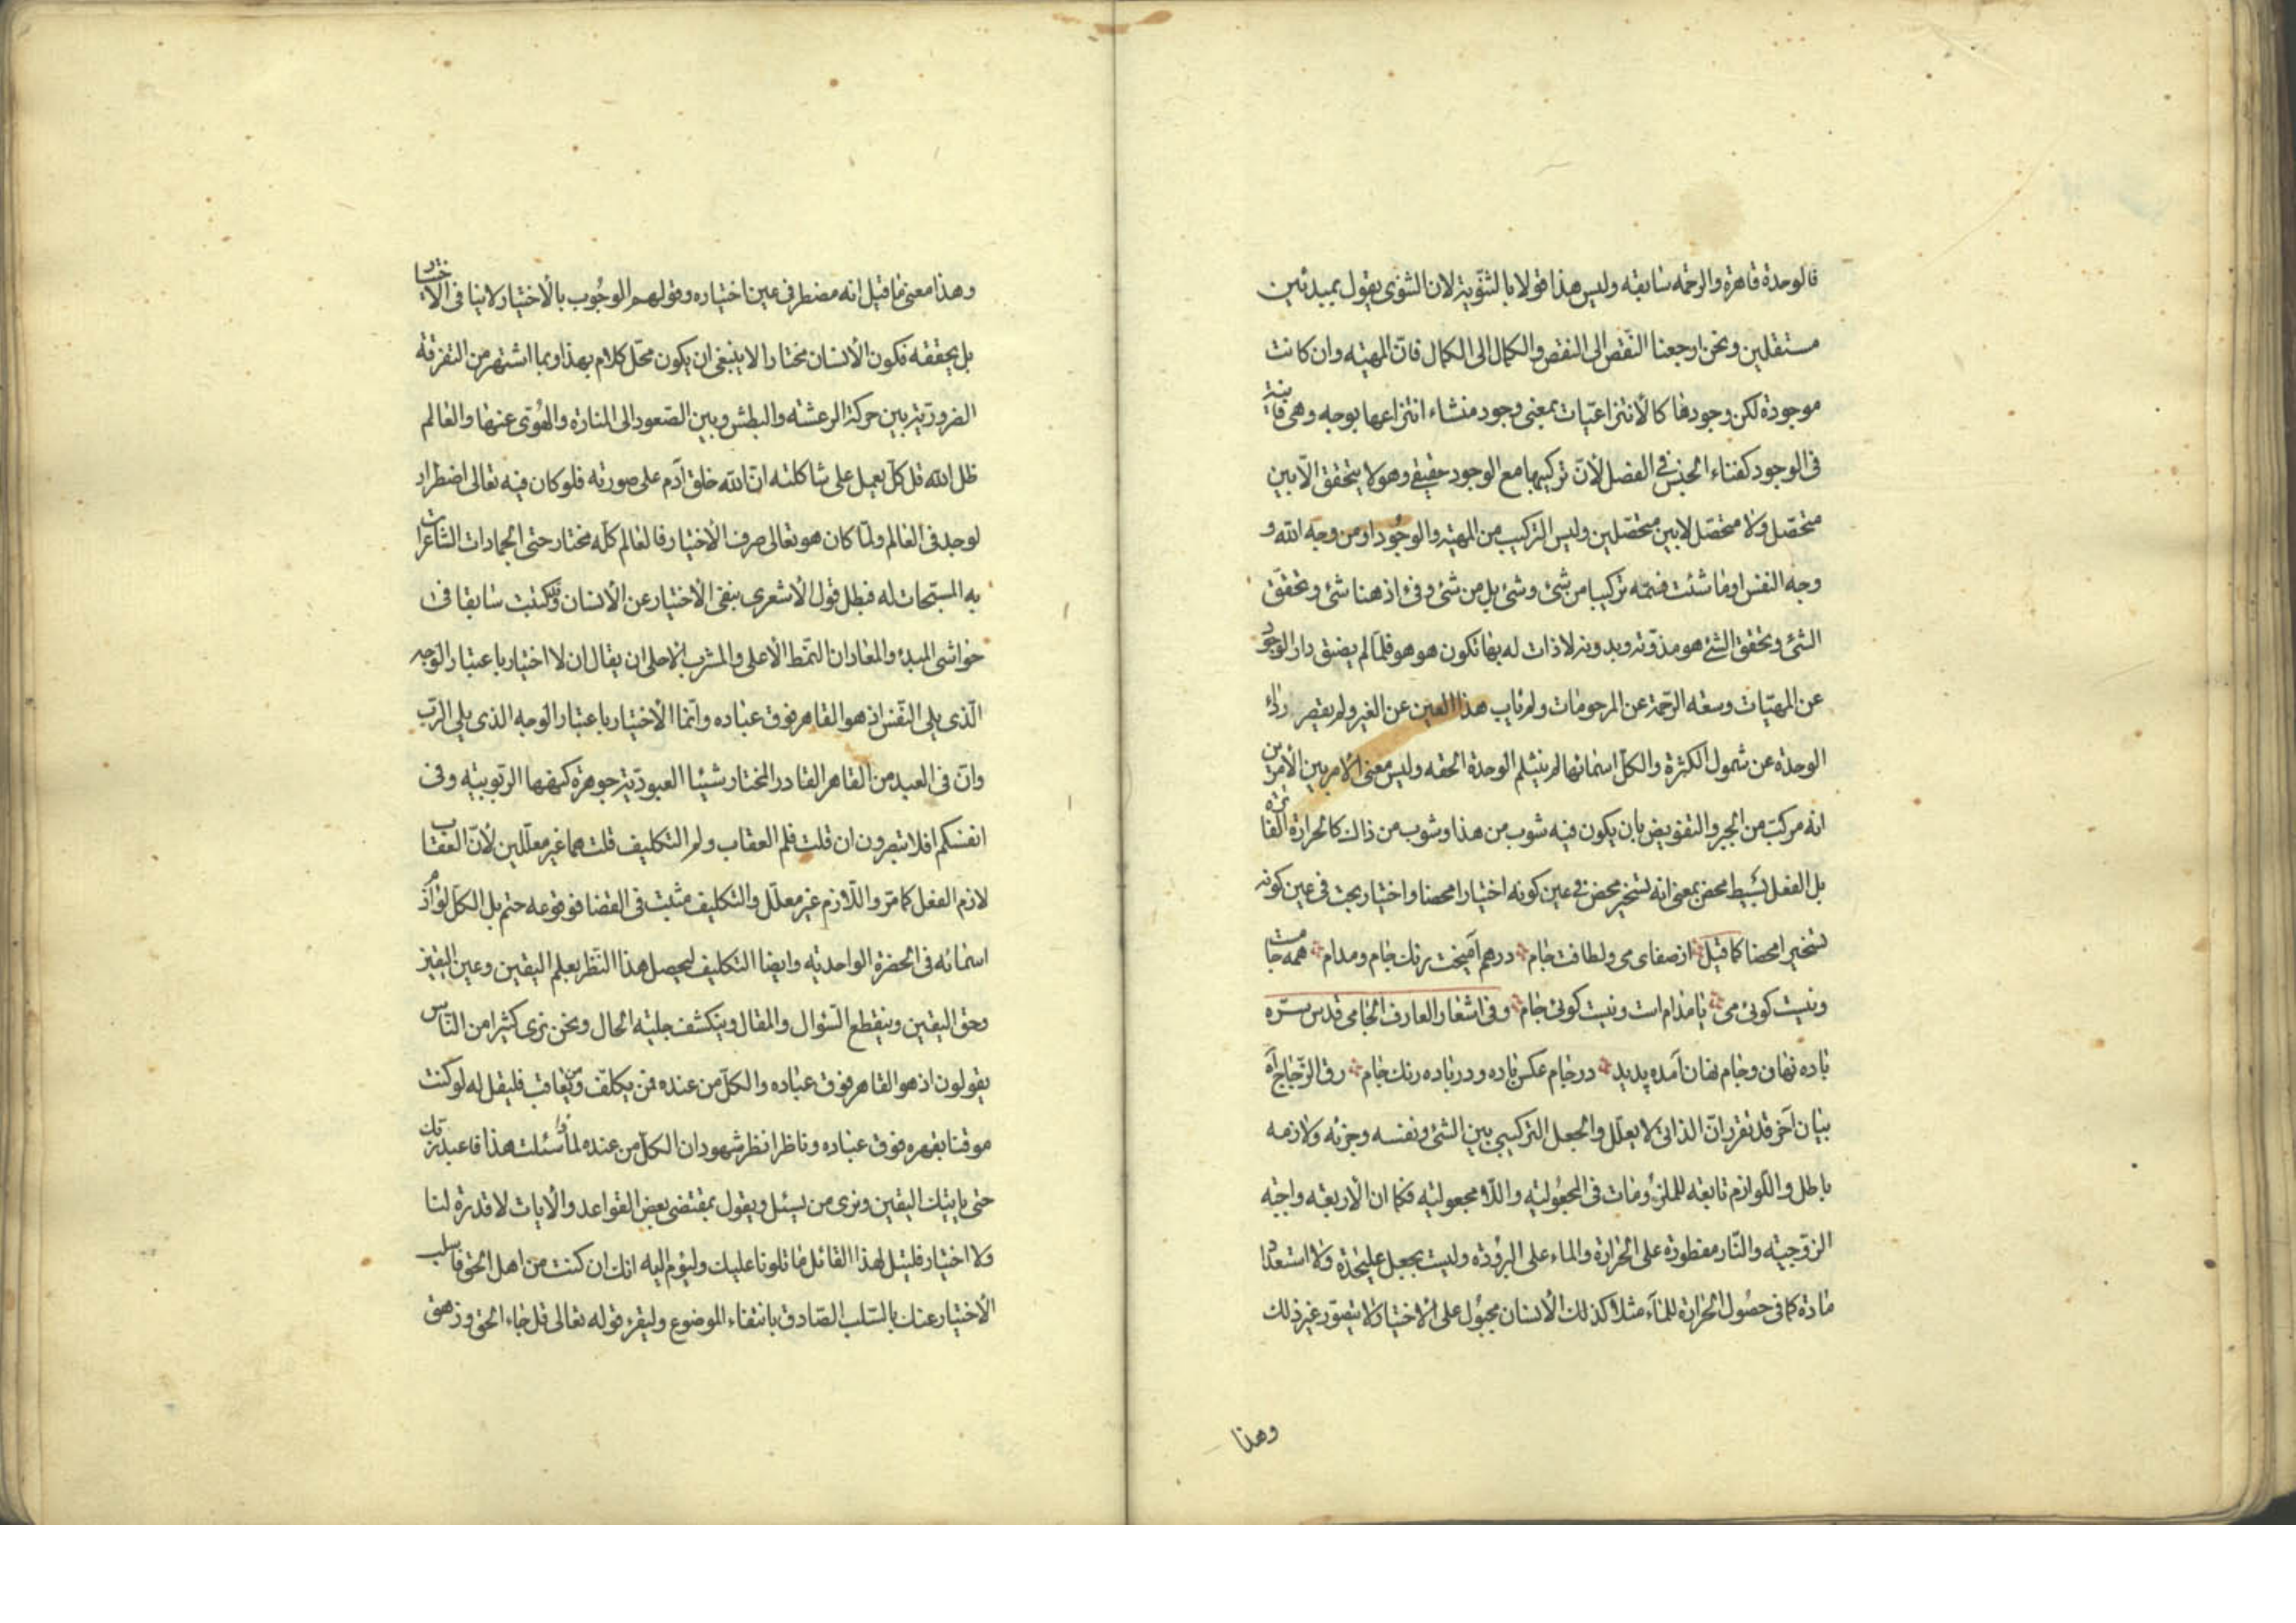 فالوحدة قاهرة والرحمه سابقه وليس هذا قولا بالثنویة لان الثنوی یقول بمبدئین
مستقلین ونحن ارجعنا النقص الی النقص والکمال الی الکمال فانّ المهیّه وان کانت
موجودة لکن وجودها کالأنتزاعیّات بمعنی وجود منشاء انتزاعها بوجه وهی فانیة
فی الوجود کفناء الجنس فی الفصل لأنّ ترکیبها مع الوجود حقیقی وهو لا یتحقق الّا بین
متحصّل ولا متحصّل لا بین متحصّلین ولیس الترکیب من المهیّة والوجُود او من وجه الله و
وجه النفس او ما شئت فسمّه ترکیبا من شئ وشئ بل من شئ وفئ اذ هنا شئ وتحقّق
الشئ وتحقق الشئ هو مذوّته وبدونه لا ذات له بها تکون هو هو فلمّا لم یضق دار الوجود
عن المهیّات وسعة الرّحمة عن المرحومات ولم یاب هذا العین عن الغیر ولم یقصر رداء
الوحدة عن شمول الکثرة والکلّ اسمائها لم ینثلم الوحدة الحقه ولیس معنی الامر بین الأمرین
انه مرکّب من الجبر والتفویض بان یکون فیه شوب من هذا وشوب من ذاك کالحرارة الفاترة
بل الفعل بسیط محض بمعنی انه تسخیر محض فی عین کونه اختیارا محضا واختیار بحت فی عین کونه
تسخیرا محضا کما قیل از صفای می ولطافت جام درهم آمیخت رنك جام ومدام همه جامست
ونیست کوئی می یا مدام است ونیست کوئی جام وفی اشعار العارف الجامی قدس سرّه
باده نهان وجام نهان آمده پدید در جام عکس باده ودر باده رنك جام رق الزّجاج آه
بیان آخر قد تقرر انّ الذاتی لا یعلّل والجعل الترکیبی بین الشئ ونفسه وجزئه ولازمه
باطل واللوازم تابعه للملزُومات فی المجعُولیّه واللّا مجعولیّه فکما ان الأربعه واجبه
الزّوجیّه والنّار مفطورة علی الحرارة والماء علی البرُودة ولیست بجعل علیحدة ولا استعداد
مادة کما فی حصُول الحرارة للمآء مثلا کذلك الأنسان مجبُول علی الاختیار لا یتصوّر غیر ذلك
وهذا
وهذا معنی ما قیل انه مضطر فی عین اختیاره وقولهم الوجُوب بالأختیار لا ینافی الأختیار
بل یحققه فکون الأنسان مختارا لا ینبغی ان یکون محلّ کلام بهذا وبما اشتهر من التفرقة
الضروریّة بین حرکة الرعشه والبطش وبین الصّعود الی المنارة والهُوی عنها والعالم
ظل الله قل کلّ یعمل علی شاکلته انّ الله خلق آدم علی صورته فلو کان فیه تعالی اضطرار
لوجد فی العالم ولمّا کان هو تعالی صرف الأختیار فالعالم کلّه مختار حتی الجمادات الشاعرات
به المسبّحات له فبطل قول الأشعری بنفی الأختیار عن الأنسان وقد کتبت سابقا فی
حواشی المبدء والمعاد ان النمّط الأعلی والمشرب الاحلی ان یقال ان لا اختیار باعتبار الوجه
الّذی یلی النّفس اذ هو القاهر فوق عباده وانّما الأختیار باعتبار الوجه الذی یلی الرّب
وانّ فی العبد من القاهر القادر المختار شیئا العبودیّة جوهرة کنهها الربّوبیّه وفی
انفسکم افلا تبصرون ان قلت فلم العقاب ولم التکلیف قلت هما غیر معلّلین لأنّ العقاب
لازم الفعل کما مرّ واللّازم غیر معلّل والتکلیف مثبت فی القضا فوقوعه حتم بل الکل لوازم
اسمائه فی الحضرة الواحدیّه وایضا التکلیف لیحصل هذا النّظر بعلم الیقین وعین الیقین
وحق الیقین وینقطع السّؤال والمقال وینکشف جلیّه الحال ونحن نری کثیرا من النّاس
یقولون اذ هو القاهر فوق عباده والکلّ من عنده فمن یکلّف ومن یعاقب فلیقل له لو کنت
موقنا بقهره فوق عباده وناظرا نظر شهود ان الکلّ من عنده لما سئلت هذا فاعبد ربّك
حتی یاتیك الیقین ونری من یسئل ویقول بمقتضی بعض القواعد والأیات لا قدرة لنا
ولا اختیار فلیتل لهذا القائل ما تلونا علیك ولیؤم الیه انك ان کنت من اهل الحق فاسلب
الأختیار عنك بالسّلب الصّادق بانتفاء الموضوع ولیقرء قوله تعالی قل جاء الحق وزهق